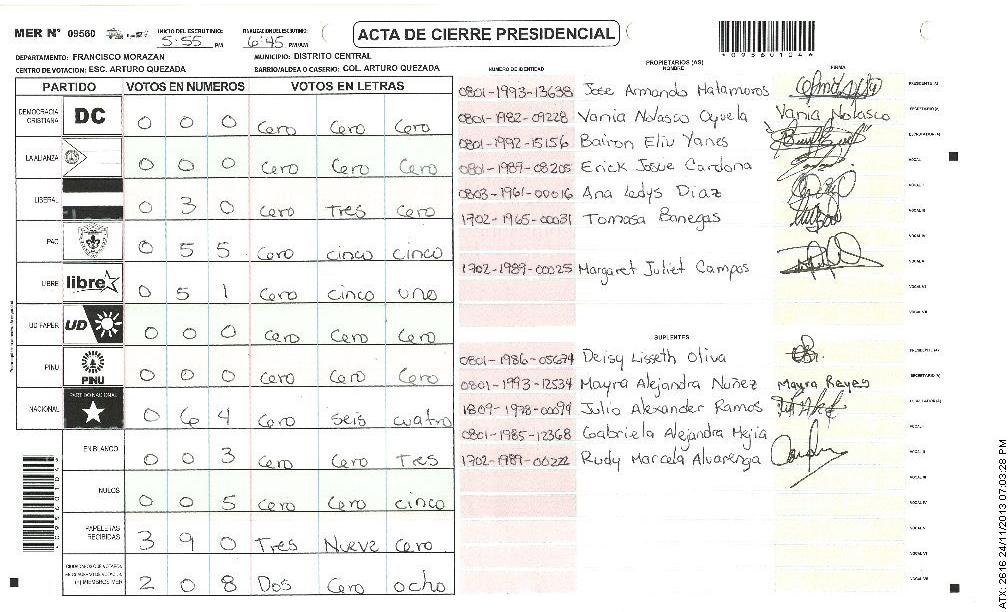 MER Nº 09560
INICIO DEL ESCRUTINIO: 5:55 PM
FINALIZACION DEL ESCRUTINIO: 6:45 PM/AM
ACTA DE CIERRE PRESIDENCIAL
DEPARTAMENTO: FRANCISCO MORAZAN
MUNICIPIO: DISTRITO CENTRAL
CENTRO DE VOTACION: ESC. ARTURO QUEZADA
BARRIO/ALDEA O CASERIO: COL. ARTURO QUEZADA
PARTIDO VOTOS EN NUMEROS VOTOS EN LETRAS
DEMOCRACIA CRISTIANA DC 0 0 0 Cero Cero Cero
LA ALIANZA 0 0 0 Cero Cero Cero
LIBERAL 0 3 0 Cero Tres Cero
PAC 0 5 5 Cero cinco cinco
LIBRE libre 0 5 1 Cero cinco uno
UD FAPER UD 0 0 0 Cero Cero Cero
PINU PINU 0 0 0 Cero Cero Cero
NACIONAL PARTIDO NACIONAL 0 6 4 Cero Seis cuatro
EN BLANCO 0 0 3 Cero Cero Tres
NULOS 0 0 5 Cero Cero cinco
PAPELETAS RECIBIDAS 3 9 0 Tres Nueve Cero
2 0 8 Dos Cero ocho
NUMERO DE IDENTIDAD PROPIETARIOS (AS) NOMBRE FIRMA
0801-1993-13638 Jose Armando Matamoros PRESIDENTE (A)
0801-1982-09228 Vania Nolasco Oyuela Vania Nolasco SECRETARIO (A)
0801-1992-15156 Bairon Eliu Yanes ESCRUTADOR (A)
0801-1989-08205 Erick Josue Cardona VOCAL I
0803-1961-00016 Ana Ledys Diaz VOCAL II
1702-1965-00031 Tomasa Banegas VOCAL III
1702-1989-00025 Margaret Juliet Campos VOCAL V
SUPLENTES
0801-1986-05674 Deisy Lisseth Oliva PRESIDENTE (A)
0801-1993-12534 Mayra Alejandra Nuñez Mayra Reyes SECRETARIO (A)
1809-1978-00094 Julio Alexander Ramos ESCRUTADOR (A)
0801-1985-12368 Gabriela Alejandra Mejia VOCAL I
1702-1989-00222 Rudy Marcela Alvarenga VOCAL II
ATX: 2616 24/11/2013 07:03:28 PM